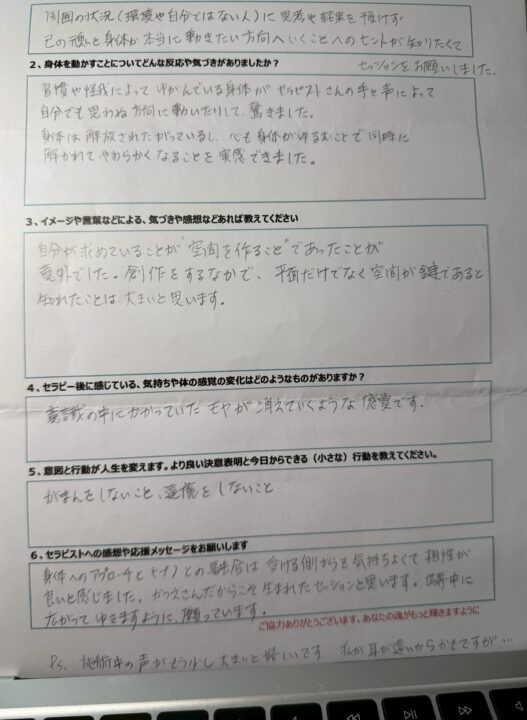 周囲の状況(環境や自分ではない人)に思考や結果を預けず
己の魂と身体が本当に動きたい方向へいくことへのヒントが知りたくて
セッションをお願いしました。
2、身体を動かすことについてどんな反応や気づきがありましたか?
習慣や怪我によってゆがんでいる身体がセラピストさんの手と声によって
自分でも思わぬ方向に動いたりして、驚きました。
身体は解放されたがっているし、心も身体がゆるむことで同時に
解かれてやわらかくなることを実感できました。
3、イメージや言葉などによる、気づきや感想などあれば教えてください
自分が求めていることが"空間を作ること"であったことが
意外でした。創作をするなかで、平面だけでなく空間が鍵であると
知れたことは大きいと思います。
4、セラピー後に感じている、気持ちや体の感覚の変化はどのようなものがありますか?
意識の中にかかっていたモヤが消えていくような感覚です。
5、意図と行動が人生を変えます。より良い決意表明と今日からできる(小さな)行動を教えてください。
がまんをしないこと、遠慮をしないこと
6、セラピストへの感想や応援メッセージをお願いします
身体へのアプローチとヒプノとの融合は受ける側からも気持ちよくて相性が
良いと感じました。かつえさんだからこそ生まれたセッションと思います。世界中に
広がってゆきますように、願っています。
ご協力ありがとうございます。あなたの魂がもっと輝きますように
P.s. 施術中の声がもう少し大きいと嬉しいです 私が耳が遠いからかもですが…